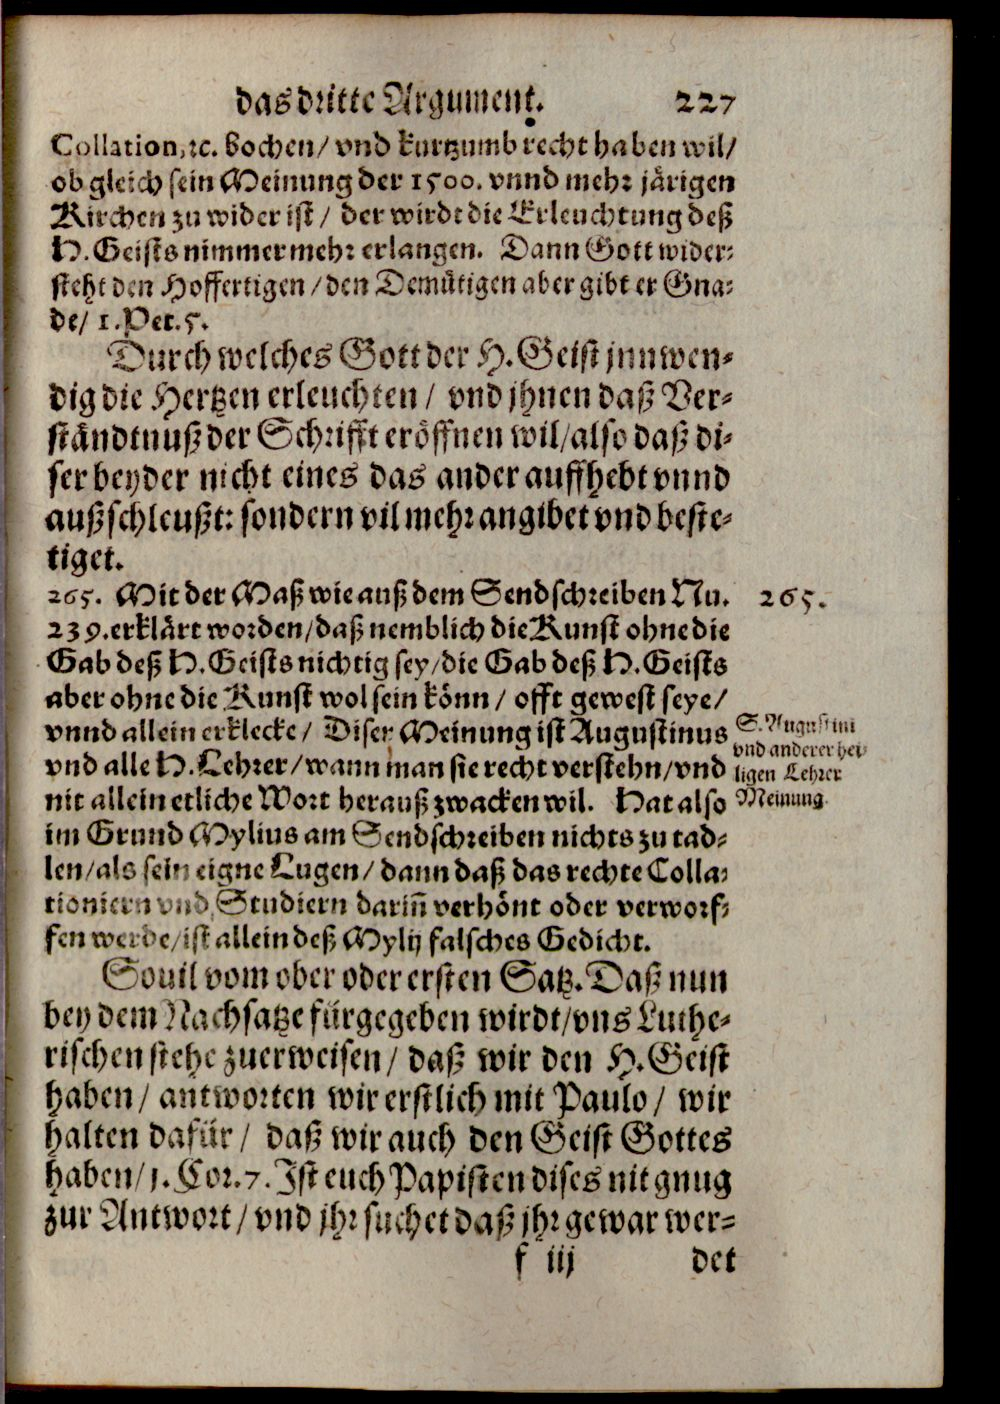 das dritte Argument. 227
Collation, ꝛc. bochen/ vnd kurtzumb recht haben wil/
ob gleich sein Meinung der 1500. vnnd mehr järigen
Kirchen zu wider ist/ der wirdt die Erleuchtung deß
H. Geists nimmermehr erlangen. Dann Gott wider-
steht den Hoffertigen/ den Demütigen aber gibt er Gna-
de/ 1. Pet. 5.
Durch welches Gott der H. Geist jnnwen-
dig die Hertzen erleuchten/ vnd jhnen daß Ver-
ständtnuß der Schrifft eröffnen wil/ also daß di-
ser beyder nicht eines das ander auffhebt vnnd
außschleußt: sondern vilmehr angibet vnd beste-
tiget.
265. Mit der Maß wie auß dem Sendschreiben Nu. 265.
239. erklärt worden/ daß nemblich die Kunst ohne die
Gab deß H. Geists nichtig sey/ die Gab deß H. Geists
aber ohne die Kunst wol sein könn/ offt gewest seye/
vnnd allein erklecke/ Diser Meinung ist Augustinus
vnd alle H. Lehrer/ wann man sie recht verstehn/ vnd
nit allein etliche Wort herauß zwacken wil. Hat also
S. Augustini
vnd anderer hei-
ligen Lehrer
Meinung.
im Grund Mylius am Sendschreiben nichts zu tad-
len/ als sein eigne Lugen/ dann daß das rechte Colla-
tioniern vnd Studiern dariñ verhönt oder verworf-
fen werde/ ist allein deß Mylij falsches Gedicht.
Souil vom ober oder ersten Satz. Daß nun
bey dem Nachsatze fürgegeben wirdt/ vns Luthe-
rischen stehe zuerweisen/ daß wir den H. Geist
haben/ antworten wir erstlich mit Paulo/ wir
halten dafür/ daß wir auch den Geist Gottes
haben/ 1. Cor. 7. Ist euch Papisten dises nit gnug
zur Antwort/ vnd jhr suchet daß jhr gewar wer-
f iij det